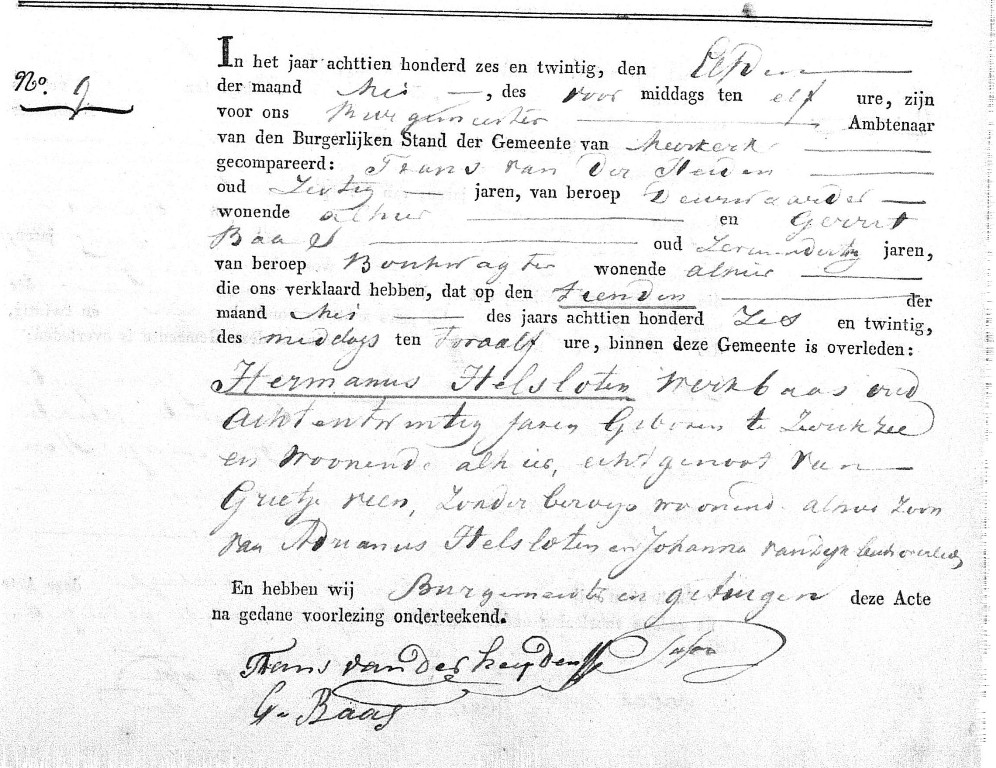 In het jaar achttien honderd zes en twintig, den Elfden
No. 9
der maand Mei, des voor middags ten elf ure, zijn
voor ons Burgemeester Ambtenaar
van den Burgerlijken Stand der Gemeente van Meerkerk
gecompareerd: Frans van der Heiden
oud Zestig jaren, van beroep Deurwaarder
wonende alhier en Gerrit
Baas oud jaren,
van beroep wonende alhier
die ons verklaard hebben, dat op den tienden der
maand Mei des jaars achttien honderd Zes en twintig,
des middags ten Twaalf ure, binnen deze Gemeente is overleden:
Hermanus Helsloten werkbaas oud
Achtentwintig jaren Geboren te Zierikzee
en woonende alhier, echtgenoot van
Grietje veen, zonder beroep woonend alhier Zoon
van Adrianus Helsloten en Johanna van Dyk beide overleden
En hebben wij Burgemeester en getuigen deze Acte
na gedane voorlezing onderteekend.
Frans van der heyden
G. Baas